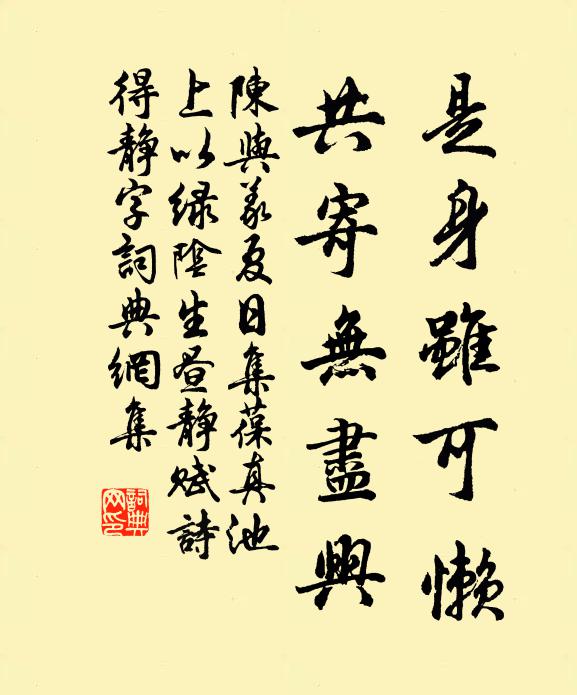 是身雖可懶
共寄無盡興
陳與義夏日集葆真池
上以緑陰生晝静賦詩
得静字詞典網集
詞典网印